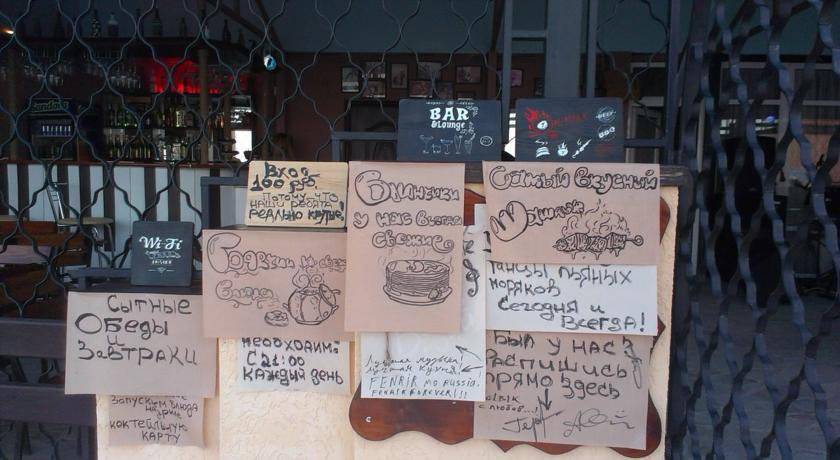 BAR
&Lounge
BBQ
Wi-Fi
Вход
100 руб.
Потому что
наши ребята
реально крутые!
Блинчики
у нас всегда
свежие
Самый вкусный
Шашлык
Сытные
Обеды
и
Завтраки
С 21:00
каждый день
Танцы пьяных
моряков
Сегодня и
Всегда!
Лучшая музыка!
Лучшая кухня!
FENRIR MO RUSSIA.
FENRIR FOREVER!!!
Был у нас?
Распишись
прямо здесь
с любов...!
Запускаем блюда
коктейльную
карту